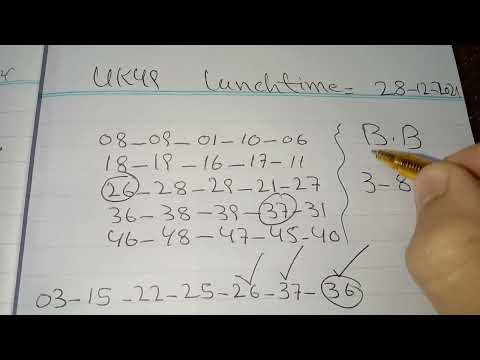 UK49 Lunchtime = 28-12-2021
08-09-01-10-06
18-19-16-17-11
26-28-29-21-27
36-38-39-37-31
46-48-47-45-40
B.B
3-8
03-15-22-25-26-37-36